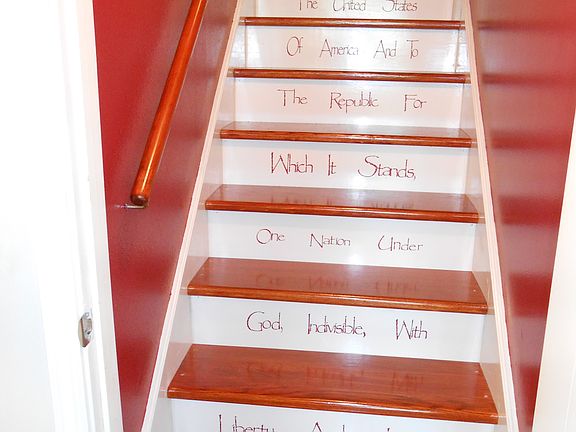 The United States
Of America And To
The Republic For
Which It Stands,
One Nation Under
God, Indivisible, With
Liberty And